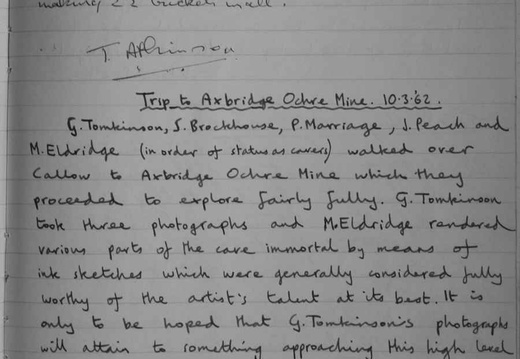 making 22 buckets in all.
T. Atkinson
Trip to Axbridge Ochre Mine. 10.3.'62.
G.Tomkinson, S.Brockhouse, P.Marriage, J.Peach and
M.Eldridge (in order of status as cavers) walked over
Callow to Axbridge Ochre Mine which they
proceeded to explore fairly fully. G.Tomkinson
took three photographs and M.Eldridge rendered
various parts of the cave immortal by means of
ink sketches which were generally considered fully
worthy of the artist's talent at its best. It is
only to be hoped that G.Tomkinson's photographs
will attain to something approaching this high level